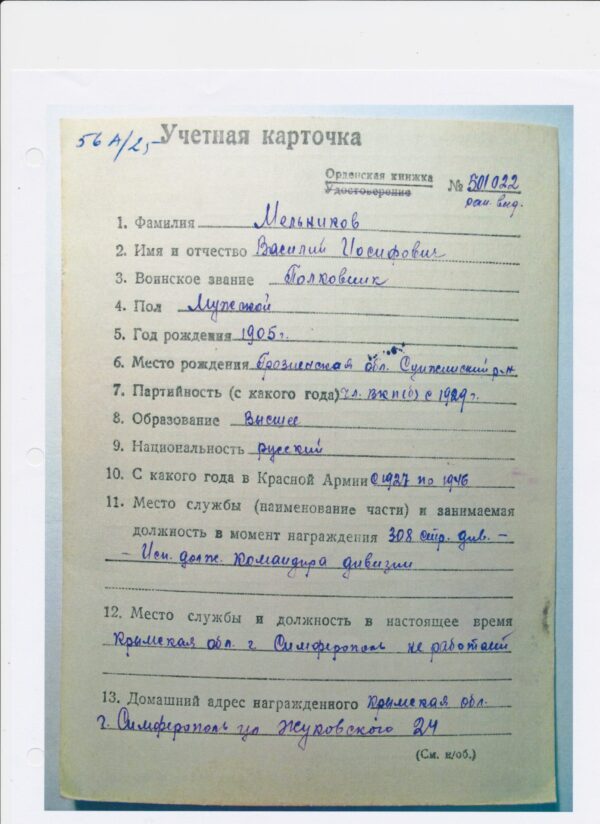 56 А/2,-
Учетная карточка
Орденская книжка
Удостоверение
№ 501022
ран. выд.
1. Фамилия Мельников
2. Имя и отчество Василий Иосифович
3. Воинское звание Полковник
4. Пол Мужской
5. Год рождения 1905 г.
6. Место рождения Грозненская обл. Сунженский р-н
7. Партийность (с какого года) Чл. ВКП(б) с 1929 г.
8. Образование Высшее
9. Национальность русский
10. С какого года в Красной Армии с 1927 по 1946
11. Место службы (наименование части) и занимаемая
должность в момент награждения 308 стр. див. -
- Исп. долж. командира дивизии
12. Место службы и должность в настоящее время
Крымская обл. г. Симферополь не работает
13. Домашний адрес награжденного Крымская обл.
г. Симферополь ул Жуковского 24
(См. н/об.)